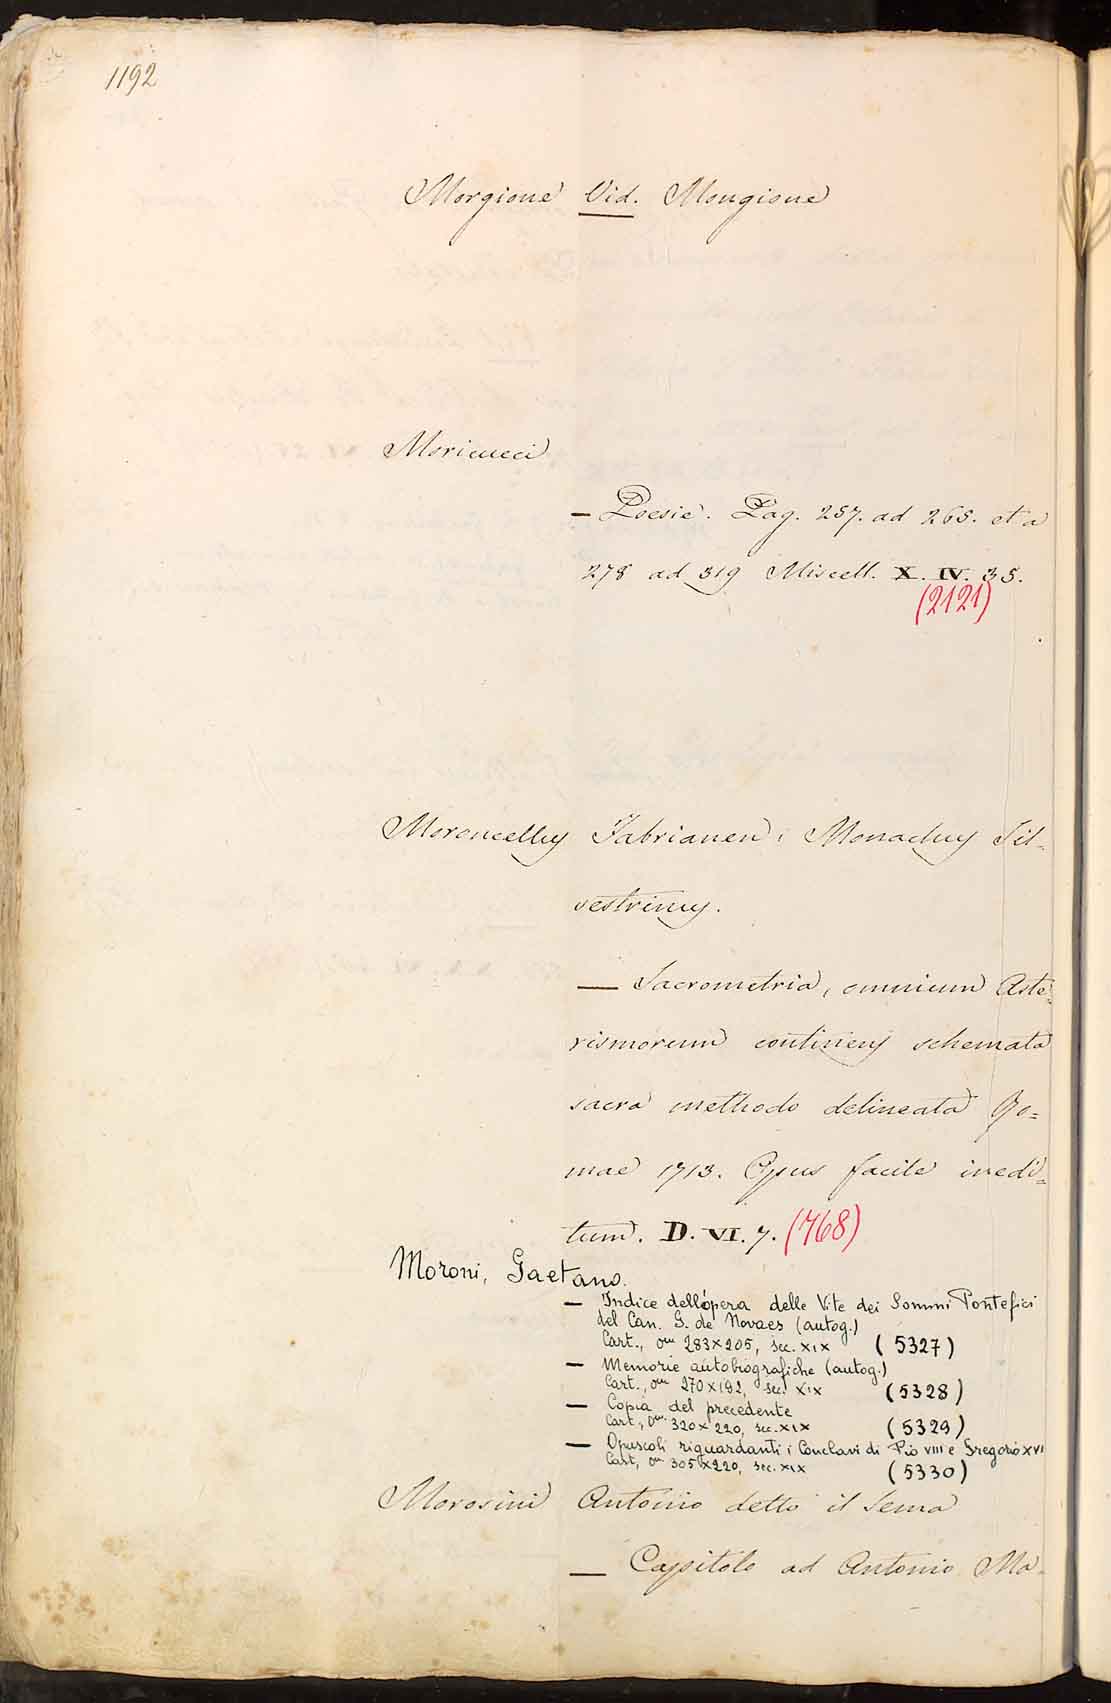 1192
Morgione Vid. Mongione
Moricucci
— Poesie. Pag. 257. ad 265. et a
278 ad 319 Miscell. X. IV. 35.
(2121)
Moroncellus Fabrianen: Monachus Sil-
vestrinus.
— Sacrometria, omnium Aste-
rismorum continens schemata
sacra methodo delineata Ro=
mae 1713. Opus facile inedi=
tum. D. VI. 7. (768)
Moroni, Gaetano.
— Indice dell'opera delle Vite dei Sommi Pontefici
del Can. G. de Novaes (autog.)
Cart., 283x205, sec. XIX (5327)
— Memorie autobiografiche (autog.)
Cart., 270x192, sec. XIX (5328)
— Copia del precedente
Cart., 320x220, sec. XIX (5329)
— Opuscoli riguardanti i Conclavi di Pio VIII e Gregorio XVI
Cart, 305x220, sec. XIX (5330)
Morosini Antonio detto il Sema
— Capitolo ad Antonio Ma-